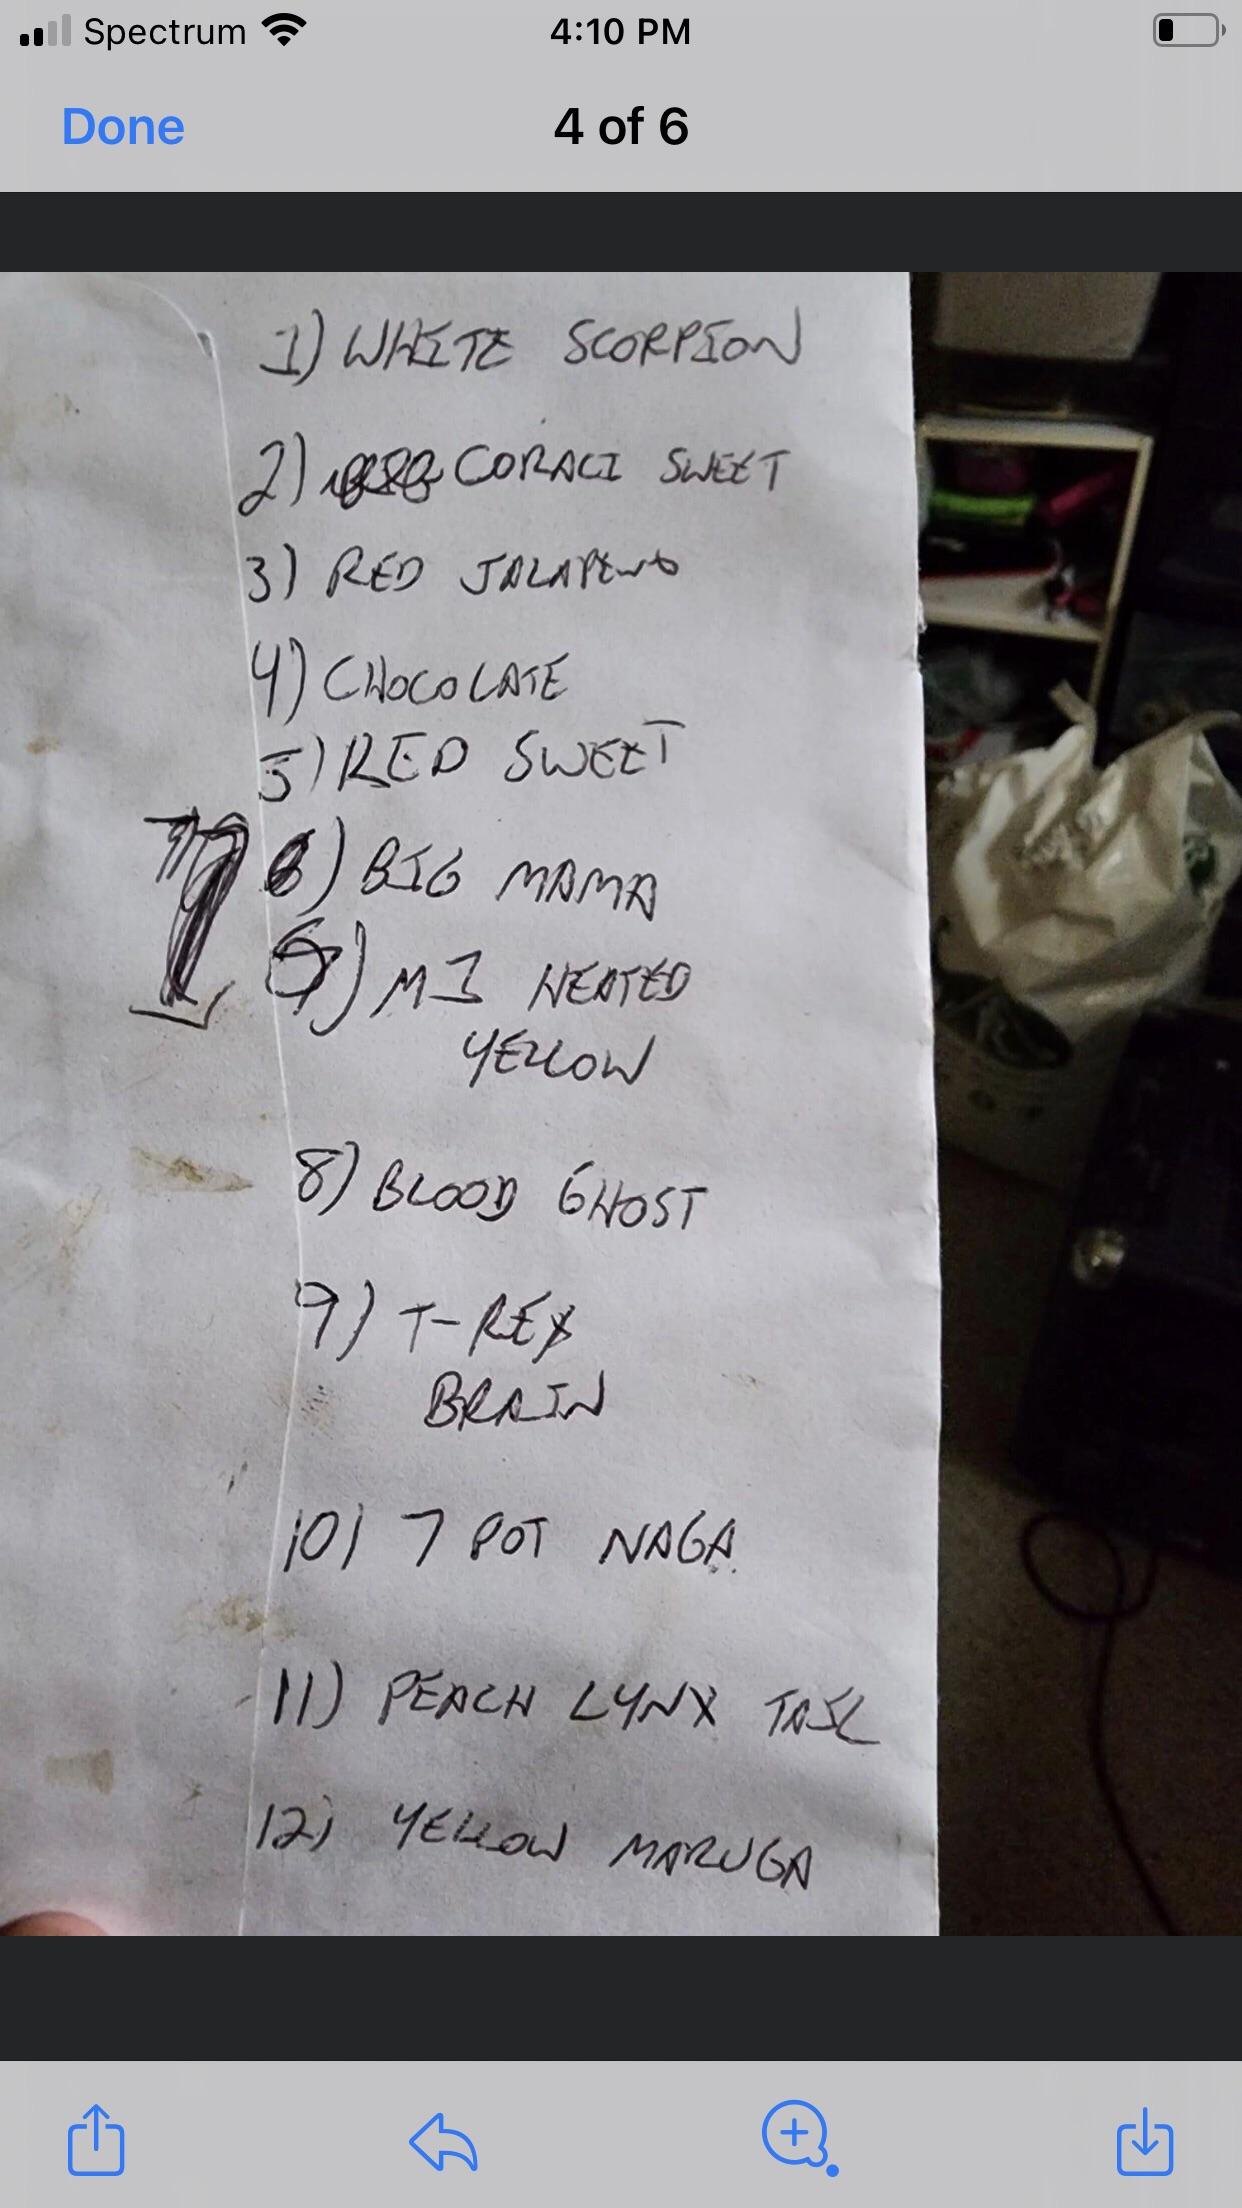 Spectrum 4:10 PM
Done 4 of 6
1) WHITE SCORPION
2) CORACI SWEET
3) RED JALAPENO
4) CHOCOLATE
5) RED SWEET
6) BIG MAMA
7) MI HEATED
YELLOW
8) BLOOD GHOST
9) T-REX
BRAIN
10) 7 POT NAGA
11) PEACH LYNX TAIL
12) YELLOW MARUGA